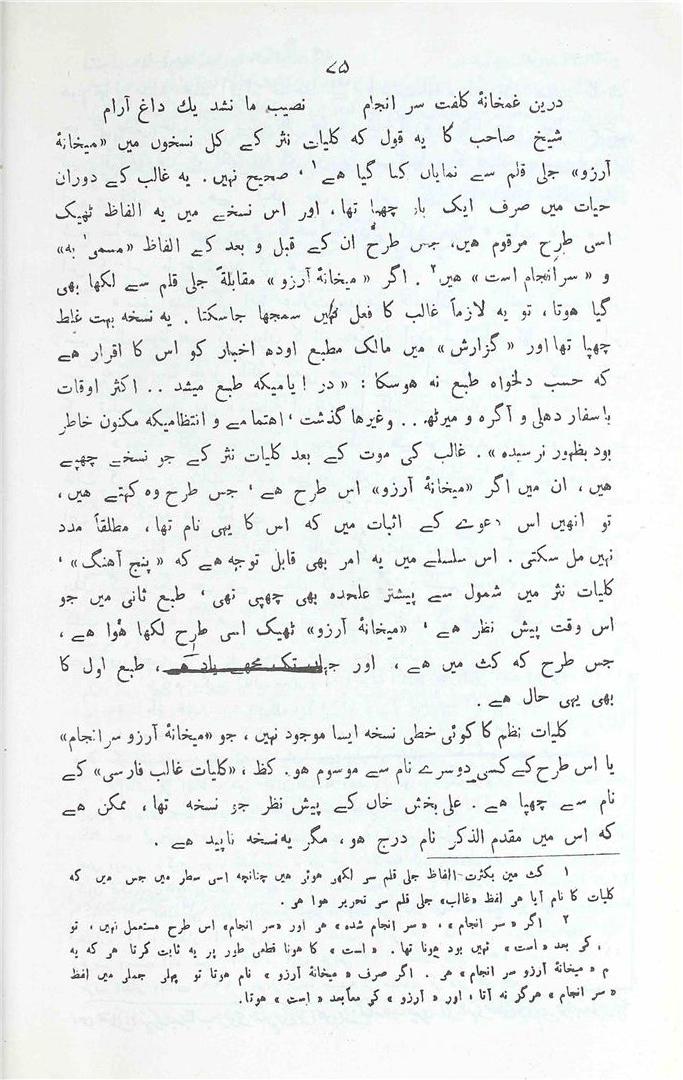 ٧٥
درین غمخانۂ کلفت سر انجام نصیب ما نشد یك داغ آرام
شیخ صاحب کا یہ قول کہ کلیات نثر کے کل نسخوں میں «میخانۂ
آرزو» جلی قلم سے نمایاں کیا گیا ہے ١ ، صحیح نہیں. یہ غالب کے دوران
حیات میں صرف ایک بار چھپا تھا، اور اس نسخے میں یہ الفاظ ٹھیک
اسی طرح مرقوم ہیں، جس طرح ان کے قبل و بعد کے الفاظ «مسمی بہ»
و «سرانجام است» ہیں ٢ . اگر «میخانۂ آرزو» مقابلۃً جلی قلم سے لکھا بھی
گیا ہوتا، تو یہ لازماً غالب کا فعل نہیں سمجھا جاسکتا. یہ نسخہ بہت غلط
چھپا تھا اور «گزارش» میں مالک مطبع اودھ اخبار کو اس کا اقرار ہے
کہ حسب دلخواہ طبع نہ ہوسکا : «در ایامیکہ طبع میشد .. اکثر اوقات
باسفار دهلی و آگرہ و میرٹھ .. وغیرها گذشت ، اهتمامے و انتظامیکہ مکنون خاطر
بود بظہور نرسیدہ». غالب کی موت کے بعد کلیات نثر کے جو نسخے چھپے
ہیں، ان میں اگر «میخانۂ آرزو» اس طرح ہے ، جس طرح وہ کہتے ہیں،
تو انھیں اس دعوے کے اثبات میں کہ اس کا یہی نام تھا، مطلقاً مدد
نہیں مل سکتی. اس سلسلے میں یہ امر بھی قابل توجہ ہے کہ «پنج آهنگ» ،
کلیات نثر میں شمول سے پیشتر علحدہ بھی چھپی تھی ، طبع ثانی میں جو
اس وقت پیش نظر ہے ، «میخانۂ آرزو» ٹھیک اسی طرح لکھا ہوا ہے ،
جس طرح کہ کث میں ہے ، اور جہاں تک مجھے یاد ہے ، طبع اول کا
بھی یہی حال ہے .
کلیات نظم کا کوئی خطی نسخہ ایسا موجود نہیں، جو «میخانۂ آرزو سرانجام»
یا اس طرح کے کسی دوسرے نام سے موسوم ہو. کظ ، «کلیات غالب فارسی» کے
نام سے چھپا ہے . علی بخش خاں کے پیش نظر جو نسخہ تھا، ممکن ہے
کہ اس میں مقدم الذکر نام درج ہو، مگر یہ نسخہ ناپید ہے .
١ کث میں بکثرت الفاظ جلی قلم سے لکھے ہوئے ہیں چنانچہ اسی سطر میں جس میں کہ
کلیات کا نام آیا ہے لفظ «غالب» جلی قلم سے تحریر ہوا ہے .
٢ اگر «سر انجام» ، «سر انجام شدہ» ہے اور «سر انجام» اس طرح مستعمل نہیں، تو
کے بعد «است» نہیں ہونا تھا . «است» کا ہونا قطعی طور پر یہ ثابت کرتا ہے کہ یہ
م «میخانۂ آرزو سر انجام» ہے . اگر صرف «میخانۂ آرزو» نام ہوتا تو پہلے جملے میں لفظ
«سر انجام» ہرگز نہ آتا ، اور «آرزو» کے معاً بعد «است» ہوتا.